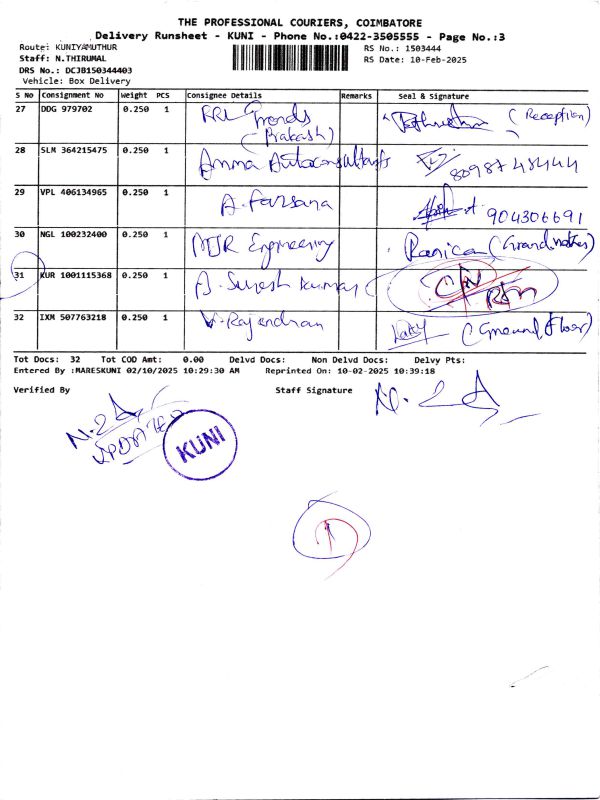 THE PROFESSIONAL COURIERS, COIMBATORE
Delivery Runsheet - KUNI - Phone No.:0422-3505555 - Page No.:3
Route: KUNIYAMUTHUR RS No.: 1503444
Staff: N.THIRUMAL RS Date: 10-Feb-2025
DRS No.: DCJB150344403
Vehicle: Box Delivery
S No Consignment No Weight PCS Consignee Details Remarks Seal & Signature
27 DDG 979702 0.250 1 (Reception)
(Prakash)
28 SLM 364215475 0.250 1 Amma Autoconsultants
29 VPL 406134965 0.250 1 A. Farsana 904306691
30 NGL 100232400 0.250 1 MJR Engineering (Grand mother)
31 KUR 1001115368 0.250 1 A. Suresh Kumar
32 IXM 507763218 0.250 1 V. Rajendran (Ground Floor)
Tot Docs: 32 Tot COD Amt: 0.00 Delvd Docs: Non Delvd Docs: Delvy Pts:
Entered By :MARESKUNI 02/10/2025 10:29:30 AM Reprinted On: 10-02-2025 10:39:18
Verified By Staff Signature
UPDATED
KUNI